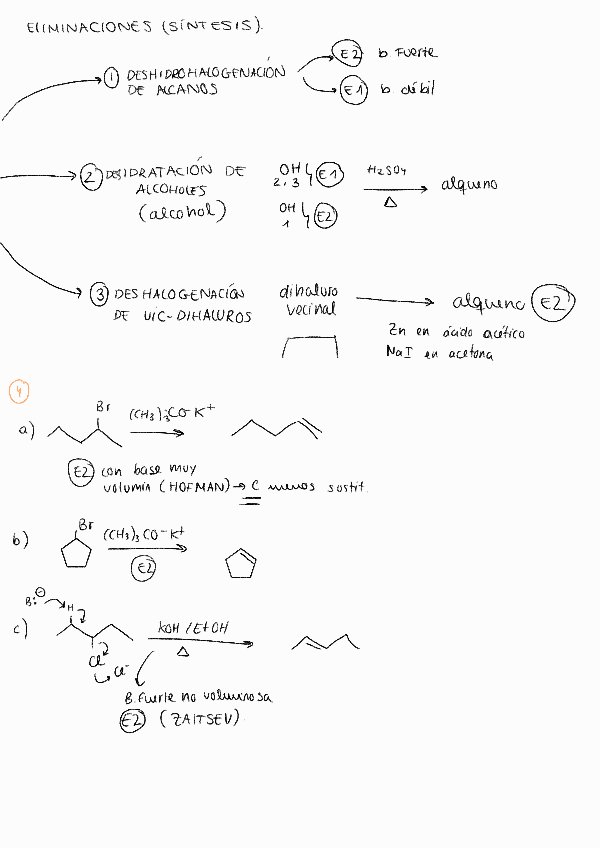 ELIMINACIONES (SÍNTESIS).
① DESHIDROHALOGENACIÓN
DE ALCANOS
E2 b. Fuerte
E1 b. débil
② DESIDRATACIÓN DE
ALCOHOLES
(alcohol)
OH 2, 3 E1
OH 1 E2
H₂SO₄
Δ
alqueno
③ DESHALOGENACIÓN
DE VIC-DIHALUROS
dihaluro
vecinal
alqueno E2
Zn en ácido acético
NaI en acetona
4
a) Br (CH₃)₃CO⁻K⁺
E2 con base muy
volumia (HOFMAN) → C menos sostit.
b) Br (CH₃)₃CO⁻K⁺
E2
c) B:⊖ H
KOH / EtOH
Δ
Cl
Cl⁻
B. Fuerte no voluminosa
E2 (ZAITSEV)